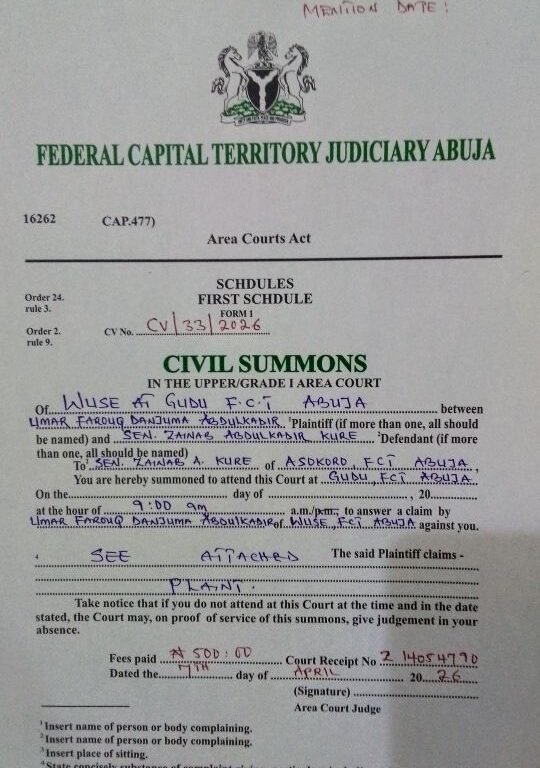 MENTION DATE:
FEDERAL CAPITAL TERRITORY JUDICIARY ABUJA
16262 CAP.477)
Area Courts Act
SCHDULES
Order 24. FIRST SCHDULE
rule 3. FORM 1
Order 2. CV No. CV/33/2026
rule 9.
CIVIL SUMMONS
IN THE UPPER/GRADE I AREA COURT
Of WUSE AT GUDU F.C.T ABUJA between
UMAR FAROUQ DANJUMA ABDULKADIR ¹Plaintiff (if more than one, all should
be named) and SEN. ZAINAB ABDULKADIR KURE ²Defendant (if more
than one, all should be named)
To² SEN. ZAINAB A. KURE of ASOKORO, FCT ABUJA,
You are hereby summoned to attend this Court at GUDU, FCT ABUJA
On the day of , 20
at the hour of 9:00 am a.m./p.m; to answer a claim by
UMAR FAROUQ DANJUMA ABDULKADIR of WUSE, FCT ABUJA against you.
⁴ SEE ATTACHED The said Plaintiff claims -
PLAINT.
Take notice that if you do not attend at this Court at the time and in the date
stated, the Court may, on proof of service of this summons, give judgement in your
absence.
Fees paid ₦ 500:00 Court Receipt No Z 14054790
Dated the 7TH day of APRIL 20 26
(Signature)
Area Court Judge
¹Insert name of person or body complaining.
²Insert name of person or body complaining.
³Insert place of sitting.